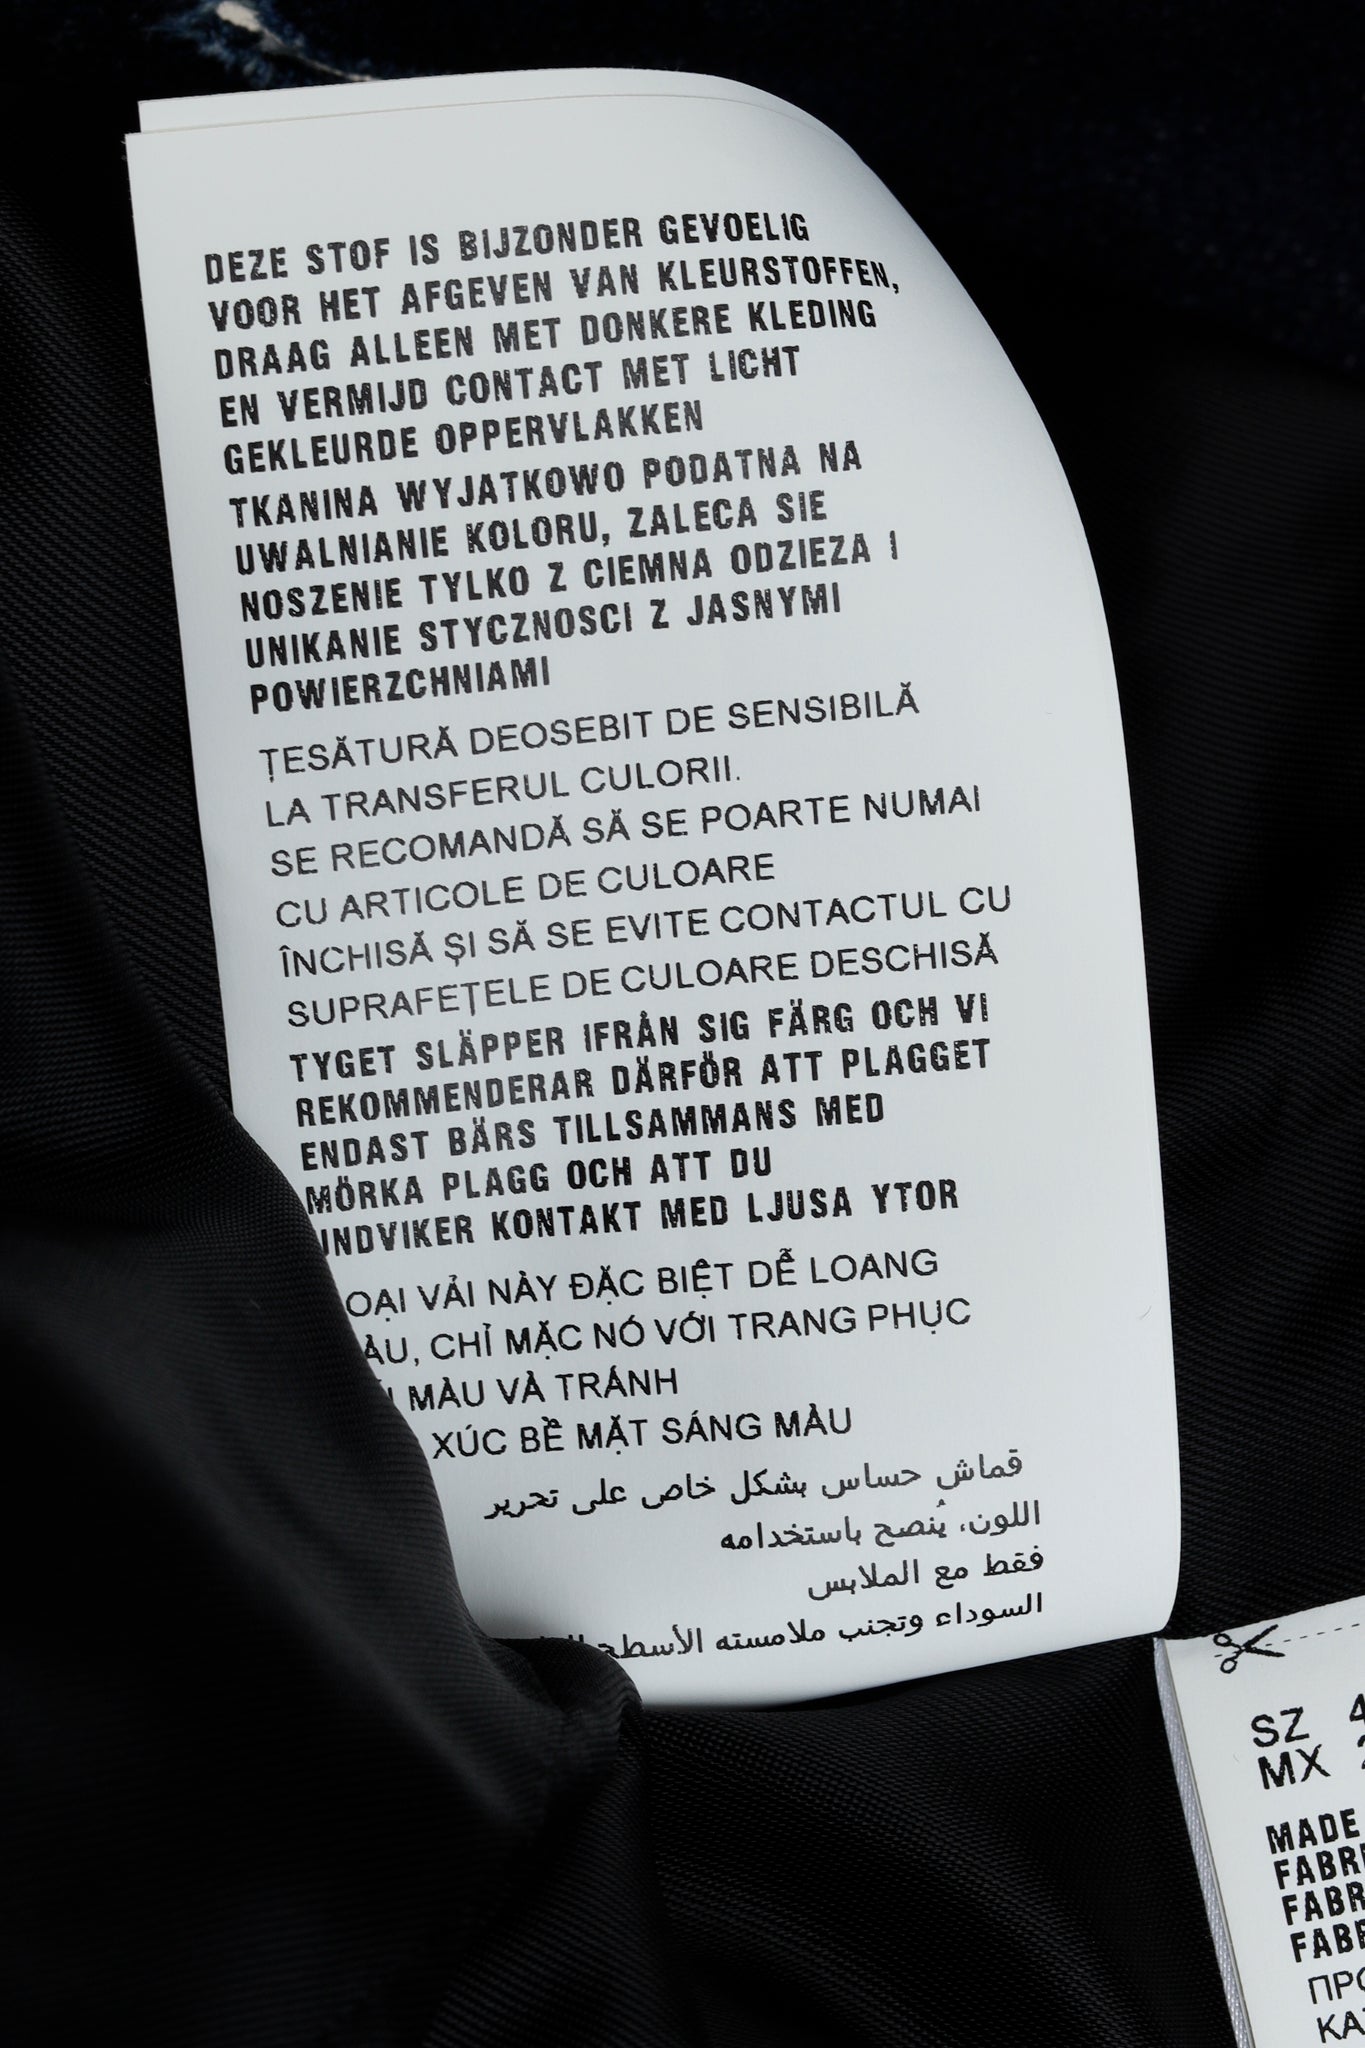 DEZE STOF IS BIJZONDER GEVOELIG
VOOR HET AFGEVEN VAN KLEURSTOFFEN,
DRAAG ALLEEN MET DONKERE KLEDING
EN VERMIJD CONTACT MET LICHT
GEKLEURDE OPPERVLAKKEN
TKANINA WYJATKOWO PODATNA NA
UWALNIANIE KOLORU, ZALECA SIE
NOSZENIE TYLKO Z CIEMNA ODZIEZA I
UNIKANIE STYCZNOSCI Z JASNYMI
POWIERZCHNIAMI
ȚESĂTURĂ DEOSEBIT DE SENSIBILĂ
LA TRANSFERUL CULORII.
SE RECOMANDĂ SĂ SE POARTE NUMAI
CU ARTICOLE DE CULOARE
ÎNCHISĂ ȘI SĂ SE EVITE CONTACTUL CU
SUPRAFEȚELE DE CULOARE DESCHISĂ
TYGET SLÄPPER IFRÅN SIG FÄRG OCH VI
REKOMMENDERAR DÄRFÖR ATT PLAGGET
ENDAST BÄRS TILLSAMMANS MED
MÖRKA PLAGG OCH ATT DU
UNDVIKER KONTAKT MED LJUSA YTOR
OẠI VẢI NÀY ĐẶC BIỆT DỄ LOANG
ÀU, CHỈ MẶC NÓ VỚI TRANG PHỤC
MÀU VÀ TRÁNH
XÚC BỀ MẶT SÁNG MÀU
قماش حساس بشكل خاص على تحرير
اللون، يُنصح باستخدامه
فقط مع الملابس
السوداء وتجنب ملامسته الأسطح
SZ 4
MX 2
MADE
FABRI
FABR
FABR
ПРО
КА